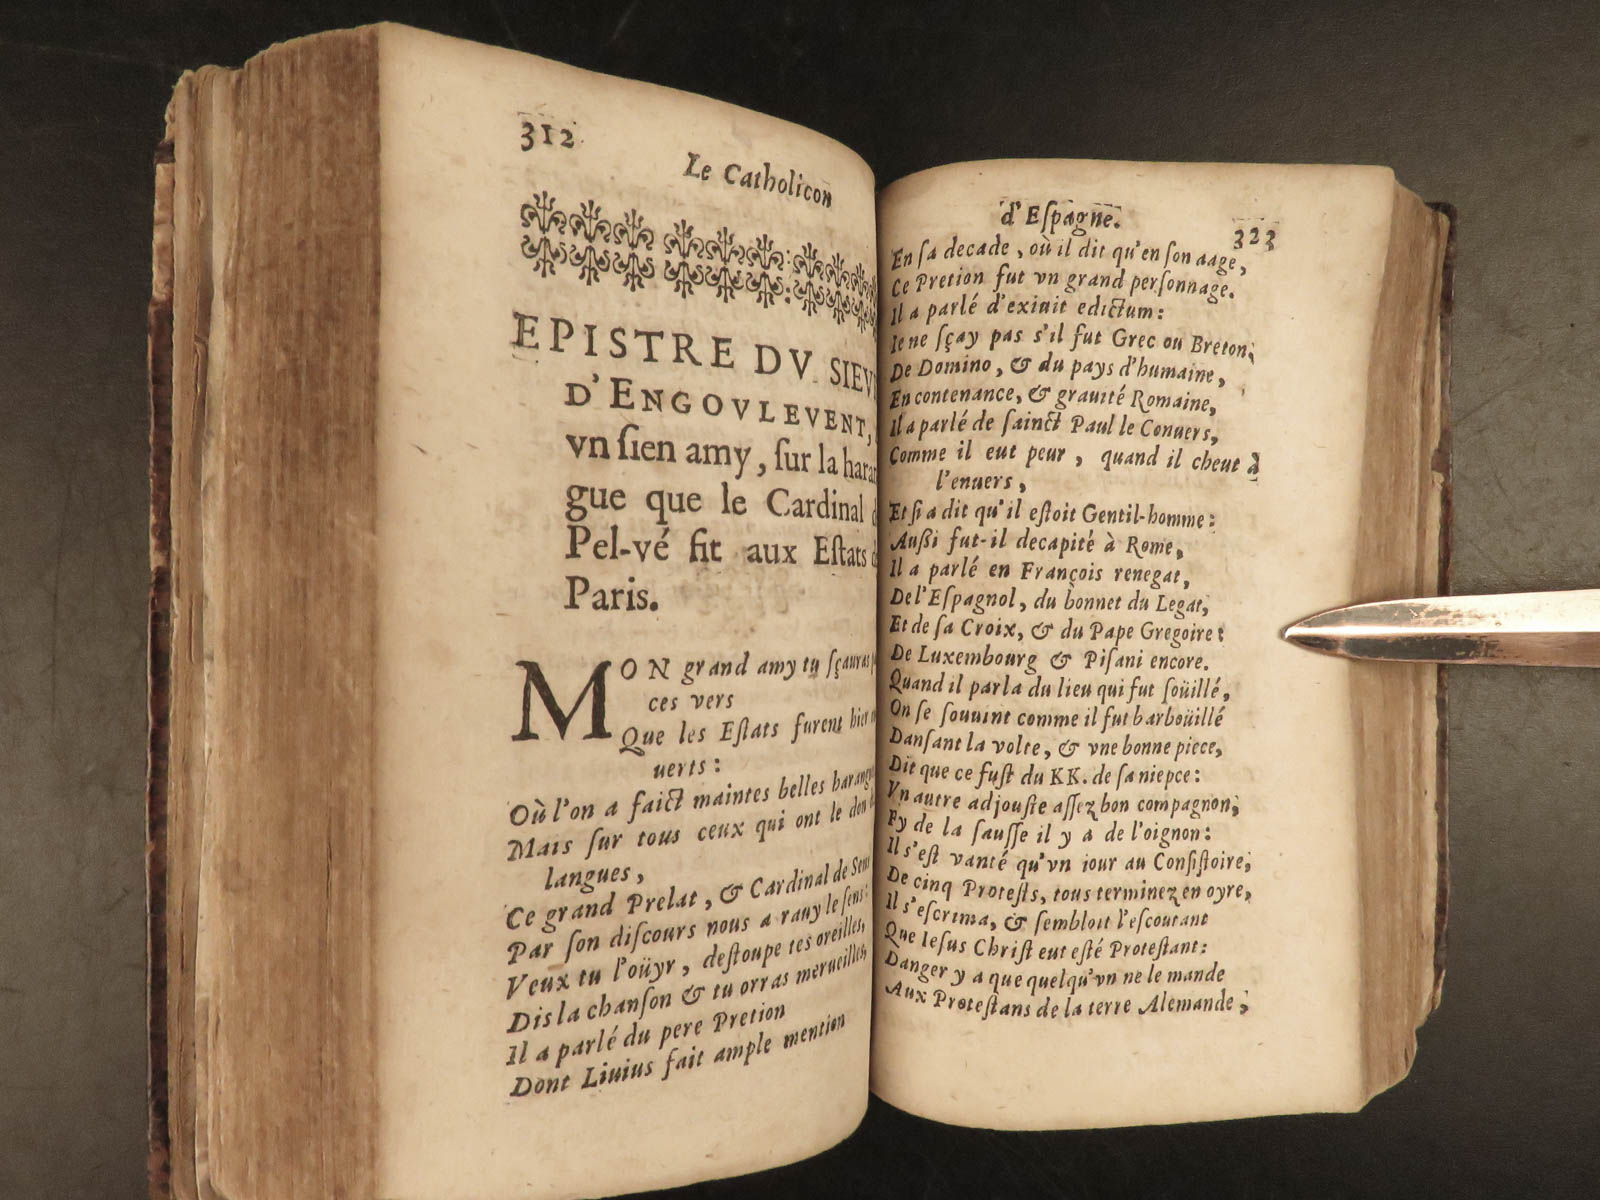 312
Le Catholicon
EPISTRE DV SIEV
D'ENGOVLEVENT,
vn ſien amy, ſur la haran
gue que le Cardinal d
Pel-vé fit aux Eſtats d
Paris.
MON grand amy tu ſçauras
ces vers
Que les Eſtats furent hier
uerts :
Où l'on a faict maintes belles harangu
Mais ſur tous ceux qui ont le don d
langues,
Ce grand Prelat, & Cardinal de Sens
Par ſon diſcours nous a rauy le ſens:
Veux tu l'oüyr, deſtoupe tes oreilles,
Dis la chanſon & tu orras merueilles,
Il a parlé du pere Pretion
Dont Liuius fait ample mention
d'Eſpagne.
323
En ſa decade, où il dit qu'en ſon aage,
Ce Pretion fut vn grand perſonnage.
Il a parlé d'exiuit edictum:
Ie ne ſçay pas s'il fut Grec ou Breton,
De Domino, & du pays d'humaine,
En contenance, & grauité Romaine,
Il a parlé de ſainct Paul le Conuers,
Comme il eut peur, quand il cheut à
l'enuers,
Et ſi a dit qu'il eſtoit Gentil-homme:
Auſſi fut-il decapité à Rome,
Il a parlé en François renegat,
De l'Eſpagnol, du bonnet du Legat,
Et de ſa Croix, & du Pape Gregoire:
De Luxembourg & Piſani encore.
Quand il parla du lieu qui fut ſoüillé,
On ſe ſouuint comme il fut barboüillé
Danſant la volte, & vne bonne piece,
Dit que ce fuſt du KK. de ſa niepce:
Vn autre adjouſte aſſez bon compagnon,
Fy de la ſauſſe il y a de l'oignon:
Il s'eſt vanté qu'vn iour au Conſiſtoire,
De cinq Proteſts, tous terminez en oyre,
Il s'eſcrima, & ſembloit l'eſcoutant
Que Ieſus Chriſt eut eſté Proteſtant:
Danger y a que quelqu'vn ne le mande
Aux Proteſtans de la terre Alemande,